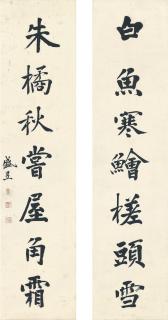 白魚寒鱠槎頭雪
朱橘秋嘗屋角霜
盛昱